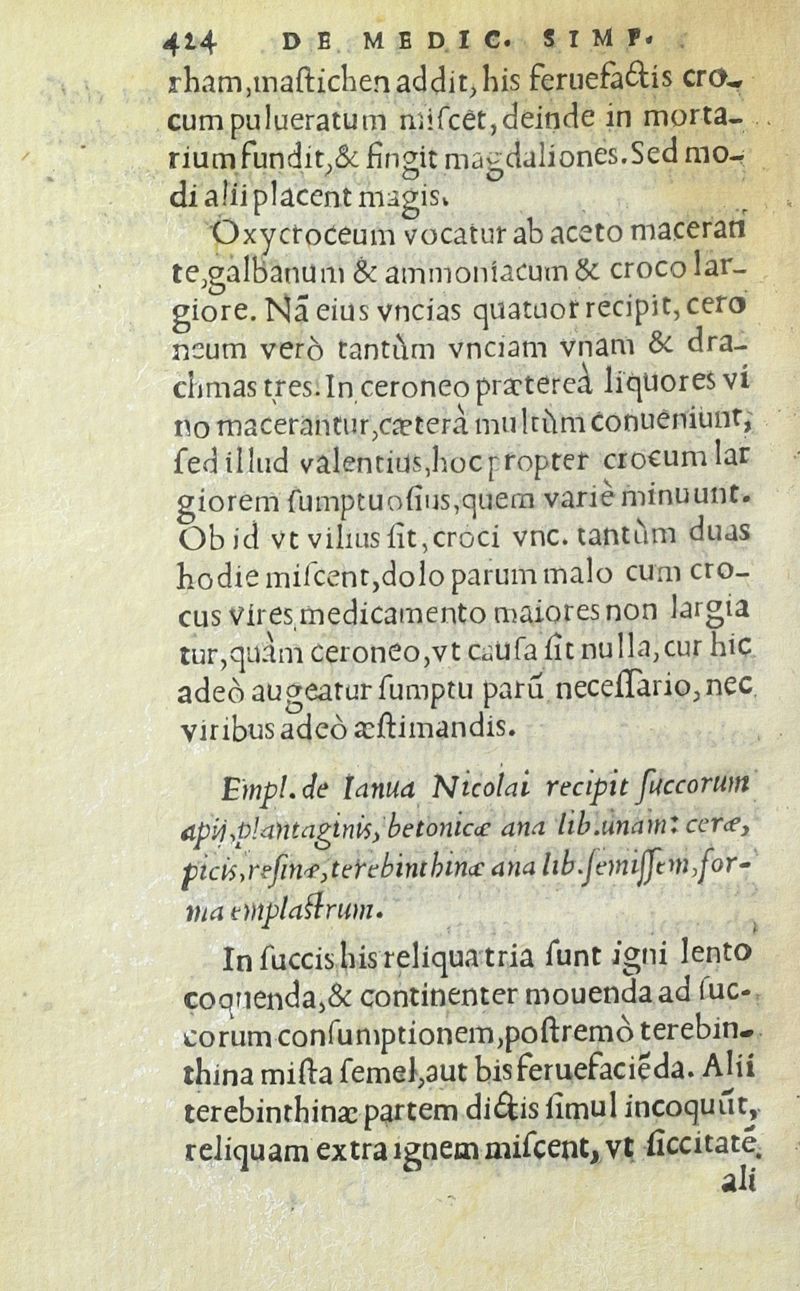 424 DE MEDIC. SIMP.
rham,maſtichen addit, his feruefactis cro-
cum pulueratum miſcet, deinde in morta-
rium fundit,& fingit magdaliones. Sed mo-
di alii placent magis.
Oxycroceum vocatur ab aceto maceran
te,galbanum & ammoniacum & croco lar-
giore. Nã eius vncias quatuor recipit, cero
neum verò tantùm vnciam vnam & dra-
chmas tres. In ceroneo prætereà liquores vi
no macerantur,cæterà multùm conueniunt,
ſed illud valentius,hoc propter crocum lar
giorem ſumptuoſius,quem variè minuunt.
Ob id vt vilius ſit, croci vnc. tantùm duas
hodie miſcent,dolo parum malo cum cro-
cus vires medicamento maiores non largia
tur,quàm ceroneo,vt cauſa ſit nulla, cur hic
adeò augeatur ſumptu parũ neceſſario, nec
viribus adeò æſtimandis.
Empl. de Ianua Nicolai recipit ſuccorum
apij,plantaginis, betonicæ ana lib.unam: ceræ,
picis,reſinæ,terebinthinæ ana lib.ſemiſſem,for-
ma emplaſtrum.
In ſuccis his reliqua tria ſunt igni lento
coquenda,& continenter mouenda ad ſuc-
corum conſumptionem,poſtremò terebin-
thina miſta ſemel,aut bis feruefaciẽda. Alii
terebinthinæ partem dictis ſimul incoquũt,
reliquam extra ignem miſcent, vt ſiccitatẽ
ali